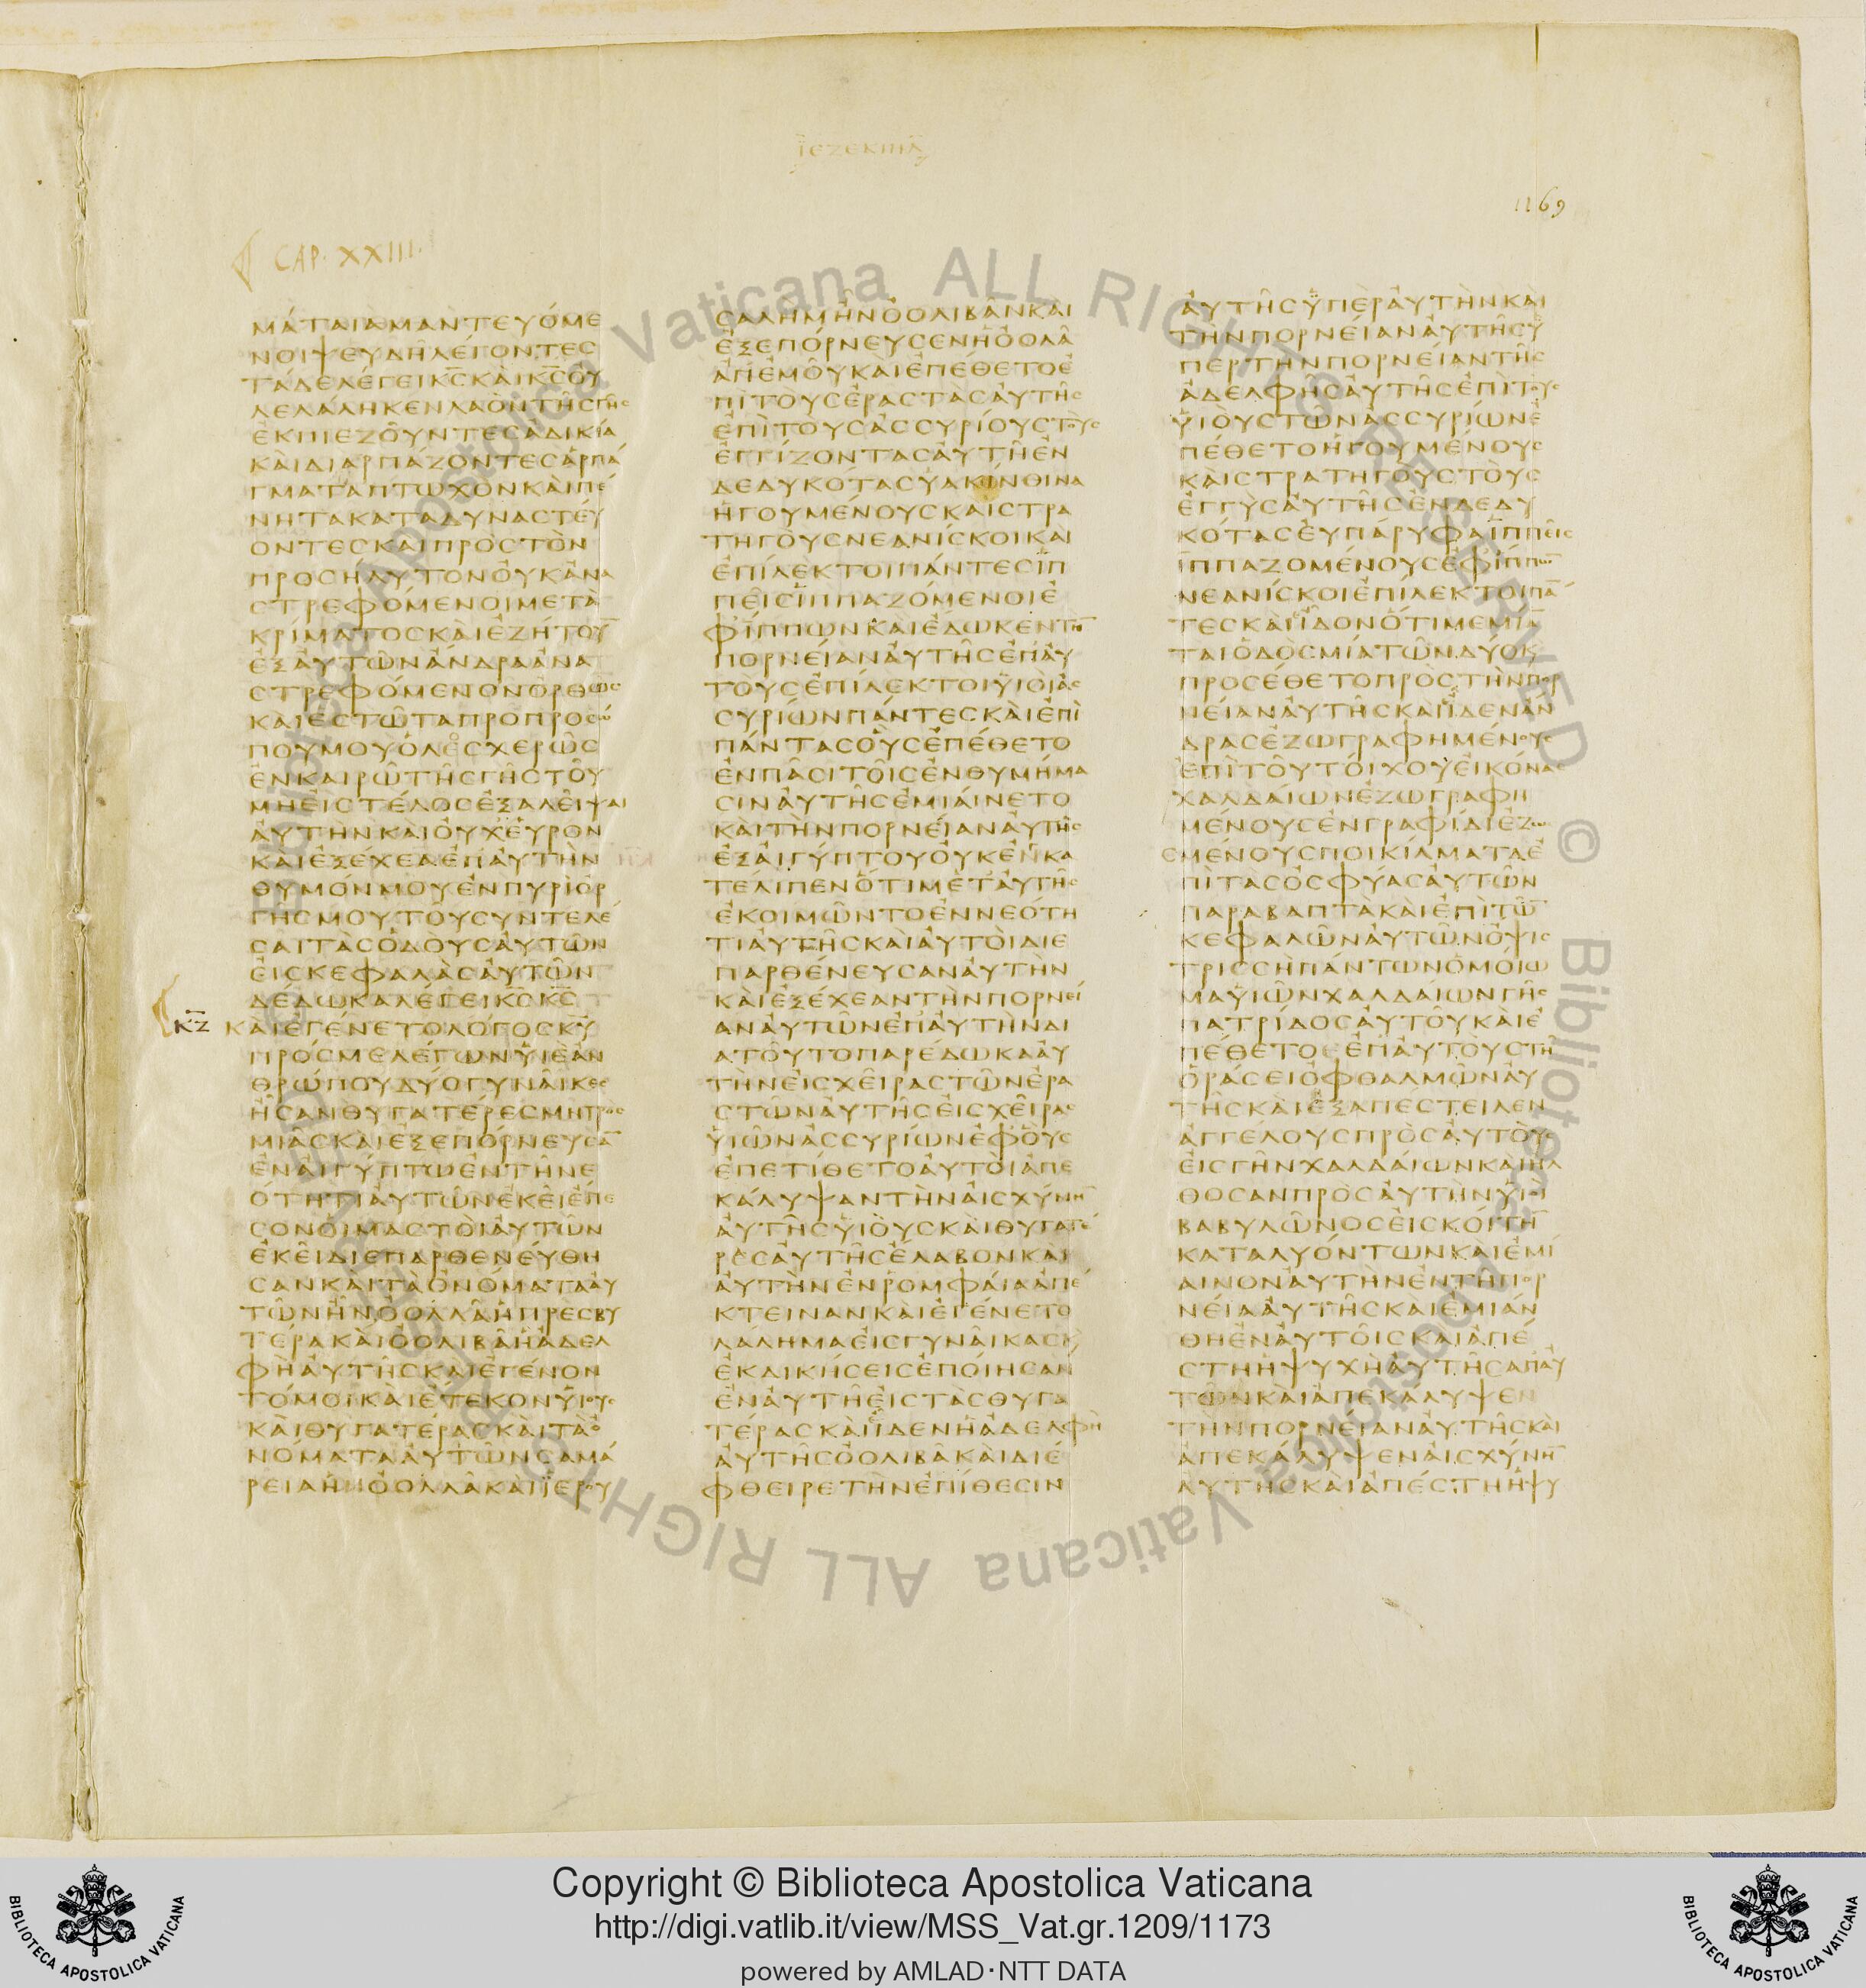 ϊεζεκιηλ
1169
CAP. XXIII.
ΜΑΤΑΙΑΜΑΝΤΕΥΟΜΕ
ΝΟΙΨΕΥΔΗΛΕΓΟΝΤΕΣ
ΤΑΔΕΛΕΓΕΙΚΣΚΑΙΚΣΟΥ
ΛΕΛΑΛΗΚΕΝΛΑΟΝΤΗΣΓΗΣ
ΕΚΠΙΕΖΟΥΝΤΕΣΑΔΙΚΙΑ
ΚΑΙΔΙΑΡΠΑΖΟΝΤΕΣΑΡΠΑ
ΓΜΑΤΑΠΤΩΧΟΝΚΑΙΠΕ
ΝΗΤΑΚΑΤΑΔΥΝΑΣΤΕΥ
ΟΝΤΕΣΚΑΙΠΡΟΣΤΟΝ
ΠΡΟΣΗΛΥΤΟΝΟΥΚΑΝΑ
ΣΤΡΕΦΟΜΕΝΟΙΜΕΤΑ
ΚΡΙΜΑΤΟΣΚΑΙΕΖΗΤΟΥ̅
ΕΞΑΥΤΩΝΑΝΔΡΑΑΝΑ
ΣΤΡΕΦΟΜΕΝΟΝΟΡΘΩΣ
ΚΑΙΕΣΤΩΤΑΠΡΟΠΡΟΣΩ
ΠΟΥΜΟΥΟΛΟΣΧΕΡΩΣ
ΕΝΚΑΙΡΩΤΗΣΓΗΣΤΟΥ
ΜΗΕΙΣΤΕΛΟΣΕΞΑΛΕΙΨΑΙ
ΑΥΤΗΝΚΑΙΟΥΧΕΥΡΟΝ
ΚΑΙΕΞΕΧΕΑΕΠΑΥΤΗΝ
ΘΥΜΟΝΜΟΥΕΝΠΥΡΙΟΡ
ΓΗΣΜΟΥΤΟΥΣΥΝΤΕΛΕ
ΣΑΙΤΑΣΟΔΟΥΣΑΥΤΩΝ
ΕΙΣΚΕΦΑΛΑΣΑΥΤΩΝ
ΔΕΔΩΚΑΛΕΓΕΙΚΣΚΣ
ΚΖ ΚΑΙΕΓΕΝΕΤΟΛΟΓΟΣΚΥ
ΠΡΟΣΜΕΛΕΓΩΝΥΙΕΑΝ
ΘΡΩΠΟΥΔΥΟΓΥΝΑΙΚΕΣ
ΗΣΑΝΘΥΓΑΤΕΡΕΣΜΗΤΡΟΣ
ΜΙΑΣΚΑΙΕΞΕΠΟΡΝΕΥΣΑ̅
ΕΝΑΙΓΥΠΤΩΕΝΤΗΝΕ
ΟΤΗΤΙΑΥΤΩΝΕΚΕΙΕΠΕ
ΣΟΝΟΙΜΑΣΤΟΙΑΥΤΩΝ
ΕΚΕΙΔΙΕΠΑΡΘΕΝΕΥΘΗ
ΣΑΝΚΑΙΤΑΟΝΟΜΑΤΑΑΥ
ΤΩΝΗΝΟΟΛΛΑΗΠΡΕΣΒΥ
ΤΕΡΑΚΑΙΟΟΛΙΒΑΗΑΔΕΛ
ΦΗΑΥΤΗΣΚΑΙΕΓΕΝΟΝ
ΤΟΜΟΙΚΑΙΕΤΕΚΟΝΥΙΟΥΣ
ΚΑΙΘΥΓΑΤΕΡΑΣΚΑΙΤΑΟ
ΝΟΜΑΤΑΑΥΤΩΝΣΑΜΑ
ΡΕΙΑΗΝΟΟΛΛΑΚΑΙΙΕΡΟΥ
ΣΑΛΗΜΗΝΟΟΛΙΒΑΝΚΑΙ
ΕΞΕΠΟΡΝΕΥΣΕΝΗΟΟΛΑ
ΑΠΕΜΟΥΚΑΙΕΠΕΘΕΤΟΕ
ΠΙΤΟΥΣΕΡΑΣΤΑΣΑΥΤΗΣ
ΕΠΙΤΟΥΣΑΣΣΥΡΙΟΥΣΤΟΥΣ
ΕΓΓΙΖΟΝΤΑΣΑΥΤΗΕΝ
ΔΕΔΥΚΟΤΑΣΥΑΚΙΝΘΙΝΑ
ΗΓΟΥΜΕΝΟΥΣΚΑΙΣΤΡΑ
ΤΗΓΟΥΣΝΕΑΝΙΣΚΟΙΚΑΙ
ΕΠΙΛΕΚΤΟΙΠΑΝΤΕΣΙΠ
ΠΕΙΣΙΠΠΑΖΟΜΕΝΟΙΕ
ΦΙΠΠΩΝΚΑΙΕΔΩΚΕΝΤΗ̅
ΠΟΡΝΕΙΑΝΑΥΤΗΣΕΠΑΥ
ΤΟΥΣΕΠΙΛΕΚΤΟΙΥΙΟΙΑΣ
ΣΥΡΙΩΝΠΑΝΤΕΣΚΑΙΕΠΙ
ΠΑΝΤΑΣΟΥΣΕΠΕΘΕΤΟ
ΕΝΠΑΣΙΤΟΙΣΕΝΘΥΜΗΜΑ
ΣΙΝΑΥΤΗΣΕΜΙΑΙΝΕΤΟ
ΚΑΙΤΗΝΠΟΡΝΕΙΑΝΑΥΤΗΣ
ΕΞΑΙΓΥΠΤΟΥΟΥΚΕΝΚΑ
ΤΕΛΙΠΕΝΟΤΙΜΕΤΑΥΤΗΣ
ΕΚΟΙΜΩΝΤΟΕΝΝΕΟΤΗ
ΤΙΑΥΤΗΣΚΑΙΑΥΤΟΙΔΙΕ
ΠΑΡΘΕΝΕΥΣΑΝΑΥΤΗΝ
ΚΑΙΕΞΕΧΕΑΝΤΗΝΠΟΡΝΕΙ
ΑΝΑΥΤΩΝΕΠΑΥΤΗΝΔΙ
ΑΤΟΥΤΟΠΑΡΕΔΩΚΑΑΥ
ΤΗΝΕΙΣΧΕΙΡΑΣΤΩΝΕΡΑ
ΣΤΩΝΑΥΤΗΣΕΙΣΧΕΙΡΑΣ
ΥΙΩΝΑΣΣΥΡΙΩΝΕΦΟΥΣ
ΕΠΕΤΙΘΕΤΟΑΥΤΟΙΑΠΕ
ΚΑΛΥΨΑΝΤΗΝΑΙΣΧΥΝΗ̅
ΑΥΤΗΣΥΙΟΥΣΚΑΙΘΥΓΑΤΕ
ΡΕΣΑΥΤΗΣΕΛΑΒΟΝΚΑΙ
ΑΥΤΗΝΕΝΡΟΜΦΑΙΑΑΠΕ
ΚΤΕΙΝΑΝΚΑΙΕΓΕΝΕΤΟ
ΛΑΛΗΜΑΕΙΣΓΥΝΑΙΚΑΣΚ
ΕΚΔΙΚΗΣΕΙΣΕΠΟΙΗΣΑΝ
ΕΝΑΥΤΗΕΙΣΤΑΣΘΥΓΑ
ΤΕΡΑΣΚΑΙΙΔΕΝΗΑΔΕΛΦΗ
ΑΥΤΗΣΟΟΛΙΒΑΚΑΙΔΙΕ
ΦΘΕΙΡΕΤΗΝΕΠΙΘΕΣΙΝ
ΑΥΤΗΣΥΠΕΡΑΥΤΗΝΚΑΙ
ΤΗΝΠΟΡΝΕΙΑΝΑΥΤΗΣΥ
ΠΕΡΤΗΝΠΟΡΝΕΙΑΝΤΗΣ
ΑΔΕΛΦΗΣΑΥΤΗΣΕΠΙΤΟΥΣ
ΥΙΟΥΣΤΩΝΑΣΣΥΡΙΩΝΕ
ΠΕΘΕΤΟΗΓΟΥΜΕΝΟΥΣ
ΚΑΙΣΤΡΑΤΗΓΟΥΣΤΟΥΣ
ΕΓΓΥΣΑΥΤΗΣΕΝΔΕΔΥ
ΚΟΤΑΣΕΥΠΑΡΥΦΑΙΠΠΕΙΣ
ΙΠΠΑΖΟΜΕΝΟΥΣΕΦΙΠΠΩ̅
ΝΕΑΝΙΣΚΟΙΕΠΙΛΕΚΤΟΙΠΑ̅
ΤΕΣΚΑΙΙΔΟΝΟΤΙΜΕΜΙΑ̅
ΤΑΙΟΔΟΣΜΙΑΤΩΝΔΥΟΚ
ΠΡΟΣΕΘΕΤΟΠΡΟΣΤΗΝΠΟΡ
ΝΕΙΑΝΑΥΤΗΣΚΑΙΙΔΕΝΑΝ
ΔΡΑΣΕΖΩΓΡΑΦΗΜΕΝΟΥΣ
ΕΠΙΤΟΥΤΟΙΧΟΥΕΙΚΟΝΑΣ
ΧΑΛΔΑΙΩΝΕΖΩΓΡΑΦΗ
ΜΕΝΟΥΣΕΝΓΡΑΦΙΔΙΕΖΩ
ΣΜΕΝΟΥΣΠΟΙΚΙΛΜΑΤΑΕ
ΠΙΤΑΣΟΣΦΥΑΣΑΥΤΩΝ
ΠΑΡΑΒΑΠΤΑΚΑΙΕΠΙΤΩ̅
ΚΕΦΑΛΩΝΑΥΤΩΝΟΨΙΣ
ΤΡΙΣΣΗΠΑΝΤΩΝΟΜΟΙΩ
ΜΑΥΙΩΝΧΑΛΔΑΙΩΝΓΗΣ
ΠΑΤΡΙΔΟΣΑΥΤΟΥΚΑΙΕ
ΠΕΘΕΤΟΕΠΑΥΤΟΥΣΤΗ
ΟΡΑΣΕΙΟΦΘΑΛΜΩΝΑΥ
ΤΗΣΚΑΙΕΞΑΠΕΣΤΕΙΛΕΝ
ΑΓΓΕΛΟΥΣΠΡΟΣΑΥΤΟΥΣ
ΕΙΣΓΗΝΧΑΛΔΑΙΩΝΚΑΙΗΛ
ΘΟΣΑΝΠΡΟΣΑΥΤΗΝΥΙΟΙ
ΒΑΒΥΛΩΝΟΣΕΙΣΚΟΙΤΗ̅
ΚΑΤΑΛΥΟΝΤΩΝΚΑΙΕΜΙ
ΑΙΝΟΝΑΥΤΗΝΕΝΤΗΠΟΡ
ΝΕΙΑΑΥΤΗΣΚΑΙΕΜΙΑΝ
ΘΗΕΝΑΥΤΟΙΣΚΑΙΑΠΕ
ΣΤΗΗΨΥΧΗΑΥΤΗΣΑΠΑΥ
ΤΩΝΚΑΙΑΠΕΚΑΛΥΨΕΝ
ΤΗΝΠΟΡΝΕΙΑΝΑΥΤΗΣΚΑΙ
ΑΠΕΚΑΛΥΨΕΝΑΙΣΧΥΝΗ̅
ΑΥΤΗΣΚΑΙΑΠΕΣΤΗΗΨΥ
ALL RIGHTS RESERVED © Biblioteca Apostolica Vaticana
Copyright © Biblioteca Apostolica Vaticana
http://digi.vatlib.it/view/MSS_Vat.gr.1209/1173
powered by AMLAD·NTT DATA
BIBLIOTECA APOSTOLICA VATICANA
BIBLIOTECA APOSTOLICA VATICANA